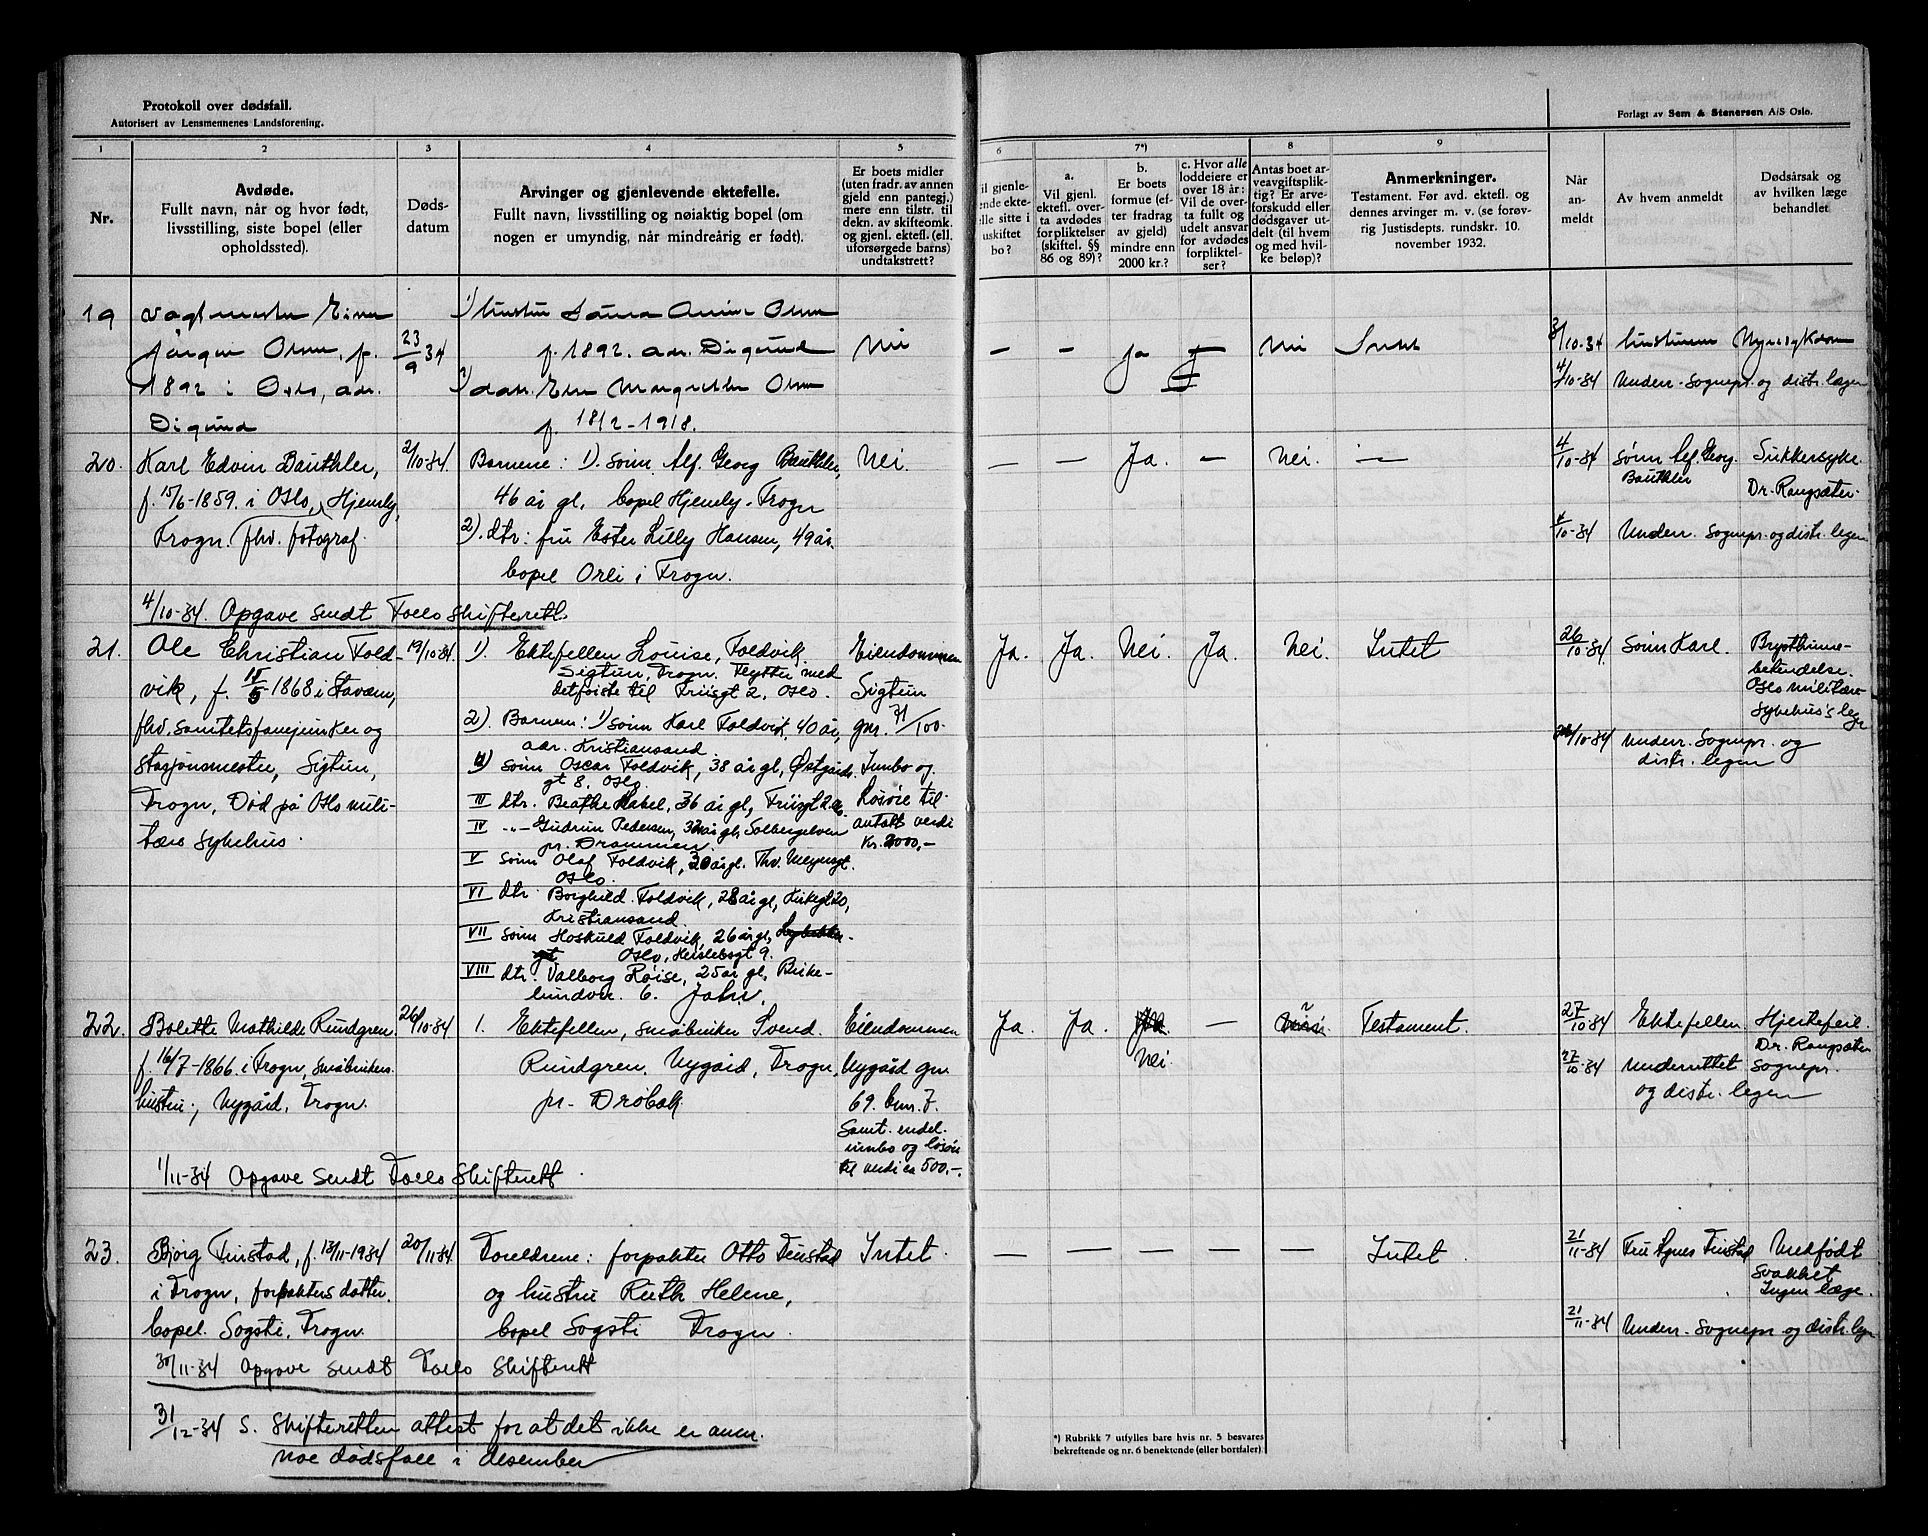 Protokoll over dødsfall.
Autorisert av Lensmennenes Landsforening.
Forlagt av Sem & Stenersen A/S Oslo.
1 2 3 4 5 6 7*) 8 9
Nr.
Avdøde.
Fullt navn, når og hvor født,
livsstilling, siste bopel (eller
opholdssted).
Døds-
datum
Arvinger og gjenlevende ektefelle.
Fullt navn, livsstilling og nøiaktig bopel (om
nogen er umyndig, når mindreårig er født).
Er boets midler
(uten fradr. av annen
gjeld enn pantegj.)
mere enn tilstr. til
dekn. av skifteomk.
og gjenl. ektef. (ell.
uforsørgede barns)
undtakstrett?
il gjenle-
nde ekte-
lle sitte i
uskiftet
bo?
a.
Vil gjenl.
ektef. over-
ta avdødes
forpliktelser
(skiftel. §§
86 og 89)?
b.
Er boets
formue (ef-
ter fradrag
av gjeld)
mindre enn
2000 kr.?
c. Hvor alle
loddeiere er
over 18 år:
Vil de over-
ta fullt og
udelt ansvar
for avdødes
forpliktel-
ser?
Antas boet ar-
veavgiftsplik-
tig? Er arve-
forskudd eller
dødsgaver ut-
delt (til hvem
og med hvil-
ke beløp)?
Anmerkninger.
Testament. Før avd. ektefl. og
dennes arvinger m. v. (se forøv-
rig Justisdepts. rundskr. 10.
november 1932.
Når
an-
meldt
Av hvem anmeldt
Dødsårsak og
av hvilken læge
behandlet
19 Vagtmester Einar
Jørgen Olsen, f.
1892 i Oslo, adr.
Digerud
23/9 34
1) hustru Laura Olsen
f. 1892. adr. Digerud
2) datr. Else Margrethe Olsen
f. 1918.
Nei
— — ja — Nei Intet
3/10-34 hustruen
4/10-34 Underr. Sognepr. og distr. lægen
20. Karl Edvin Bauthler,
f. 15/6-1859. i Oslo, Hjemly,
Frogn. fhv. fotograf.
2/10-34
Barnene: 1). sønn Alf. Georg Bauthler,
46 år gl. bopel Hjemly. Frogn
2). dtr: fru Ester Lilly Hansen, 49 år.
bopel Orli i Frogn.
Nei.
— — Ja. — Nei. —
4/10-34 Sønn Alf. Georg. Bauthler
Sukkersyke.
Dr. Rangsæter.
4/10-34 Underr. Sognepr. og distr. legen
4/10-34. Opgave sendt Follo Skifterett.
21. Ole Christian Fold-
vik, f. 11/5-1868 i Stavern,
fhv. sanitetsfanejunker og
stasjonsmester, Sigtun,
Frogn, Død på Oslo mili-
tære sykehus.
19/10-34
1). Ektefellen Louise, Foldvik
Sigtun, Frogn. Flytter med
det første til Friisgt 2. Oslo.
2). Barnene: 1) sønn Karl Foldvik, 40 år,
adr. Kristiansand
II) sønn Oscar Foldvik, 38 år gl, Østgårds-
gt 8. Oslo.
III dtr. Beathe Habel, 36 år gl, Friisgt 2
IV -"- Gudrun Pedersen, 32 år gl. Solbergelven
pr. Drammen.
V sønn Olaf Foldvik, 30 år gl. Thv. Meyersgt.
Oslo.
VI dtr. Borghild Foldvik, 28 år gl, Kirkegt 20,
Kristiansand
VII sønn Hoskuld Foldvik, 26 år gl,
gt Oslo, Herslebsgt 9.
VIII dtr. Valborg Røise, 25 år gl, Birke-
lundvn. 6. Jahr.
Eiendommen
Sigtun
gnr. 71/100.
Innbo og
løsøre til
antatt verdi
Kr. 2000,-
Ja. Ja. Nei. Ja. Nei. Intet
26/10-34 Sønn Karl.
Brysthinne-
betendelse.
Oslo militære
sykehus's lege
/10-34 Underr. Sognepr. og
distr. legen
22. Bolette Mathilde Rundgren
f. 16/7-1866. i Frogn, småbrukers
hustru, Nygård, Frogn.
26/10-34
1. Ektefellen, småbruker Svend.
Rundgren, Nygård, Frogn,
pr. Drøbak
Eiendommen
Nygård gnr
69. bnr. 7.
Samt. endel.
innbo og løsøre
til verdi ca 500,-.
Ja. Ja. Nei. — Testament.
27/10-34 Ektefellen
Hjertefeil.
Dr. Rangsæter
27/10-34 Underrettet Sognepr.
og distr. legen
1/11-34 Opgave sendt Follo Skifterett
23. Bjørg Finstad, f. 13/11-1934
i Frogn, forpakters datter.
bopel. Sogsti, Frogn.
20/11-34
Foreldrene: forpakter Otto Finstad
og hustru Ruth Helene,
bopel Sogsti Frogn.
Intet.
— — — — — Intet
21/11-34 Fru Agnes Finstad
Medfødt
svakhet
Ingen læge.
21/11-34 Underr. Sognepr og distr. legen
30/11-34 Opgave sendt Follo Skifterett
31/12-34 S. Skifteretten attest for at det ikke er anm.
noe dødsfall i desember
*) Rubrikk 7 utfylles bare hvis nr. 5 besvares
bekreftende og nr. 6 benektende (eller bortfaler)